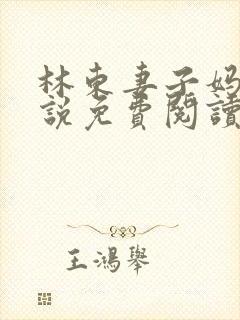 林東妻子妈
說免費閱讀
王鴻舉